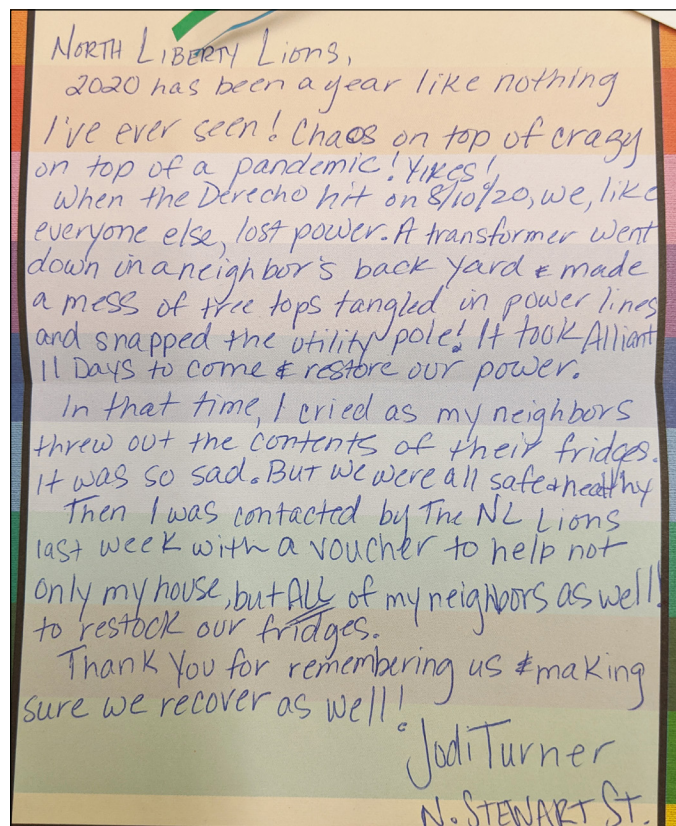 North Liberty Lions,
2020 has been a year like nothing
I've ever seen! Chaos on top of crazy
on top of a pandemic! Yikes!
When the Derecho hit on 8/10/20, we, like
everyone else, lost power. A transformer went
down in a neighbor's back yard & made
a mess of tree tops tangled in power lines
and snapped the utility pole! It took Alliant
11 Days to come & restore our power.
In that time, I cried as my neighbors
threw out the contents of their fridges.
It was so sad. But we were all safe & healthy
Then I was contacted by The NL Lions
last week with a voucher to help not
only my house, but ALL of my neighbors as well!
to restock our fridges.
Thank You for remembering us & making
sure we recover as well!
Jodi Turner
N. Stewart St.